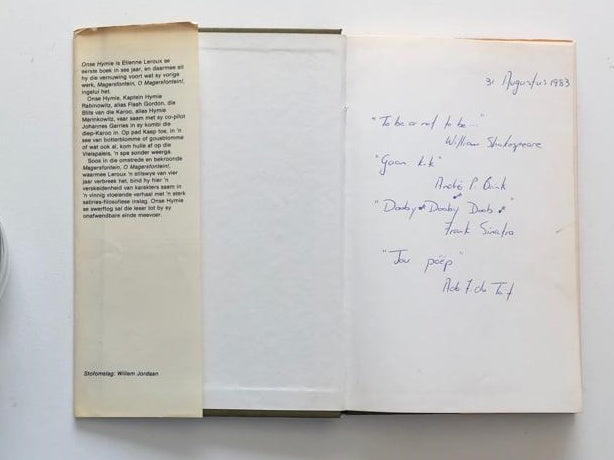 Onse Hymie is Etienne Leroux se
eerste boek in ses jaar, en daarmee sit
hy die vernuwing voort wat sy vorige
werk, Magersfontein, O Magersfontein!,
ingelui het.
Onse Hymie, Kaptein Hymie
Rabinowitz, alias Flash Gordon, die
Blits van die Karoo, alias Hymie
Merinkowitz, vaar saam met sy co-pilot
Johannes Garries in sy kombi die
diep-Karoo in. Op pad Kaap toe, in 'n
see van botterblomme of gousblomme
of wat ook al, kom hulle af op die
Vleispaleis, 'n spa sonder weerga.
Soos in die omstrede en bekroonde
Magersfontein, O Magersfontein!,
waarmee Leroux 'n stilswye van vier
jaar verbreek het, bind hy hier 'n
verskeidenheid van karakters saam in
'n vinnig vloeiende verhaal met 'n sterk
satiries-filosofiese inslag. Onse Hymie
se swerftog sal die leser tot by sy
onafwendbare einde meevoer.
Stofomslag: Willem Jordaan
31 Augustus 1983
"To be or not to be..."
William Shakespeare
"Gaan kak"
André P. Brink
"Dooby Dooby Doob"
Frank Sinatra
"Jou poëp"
du Toit